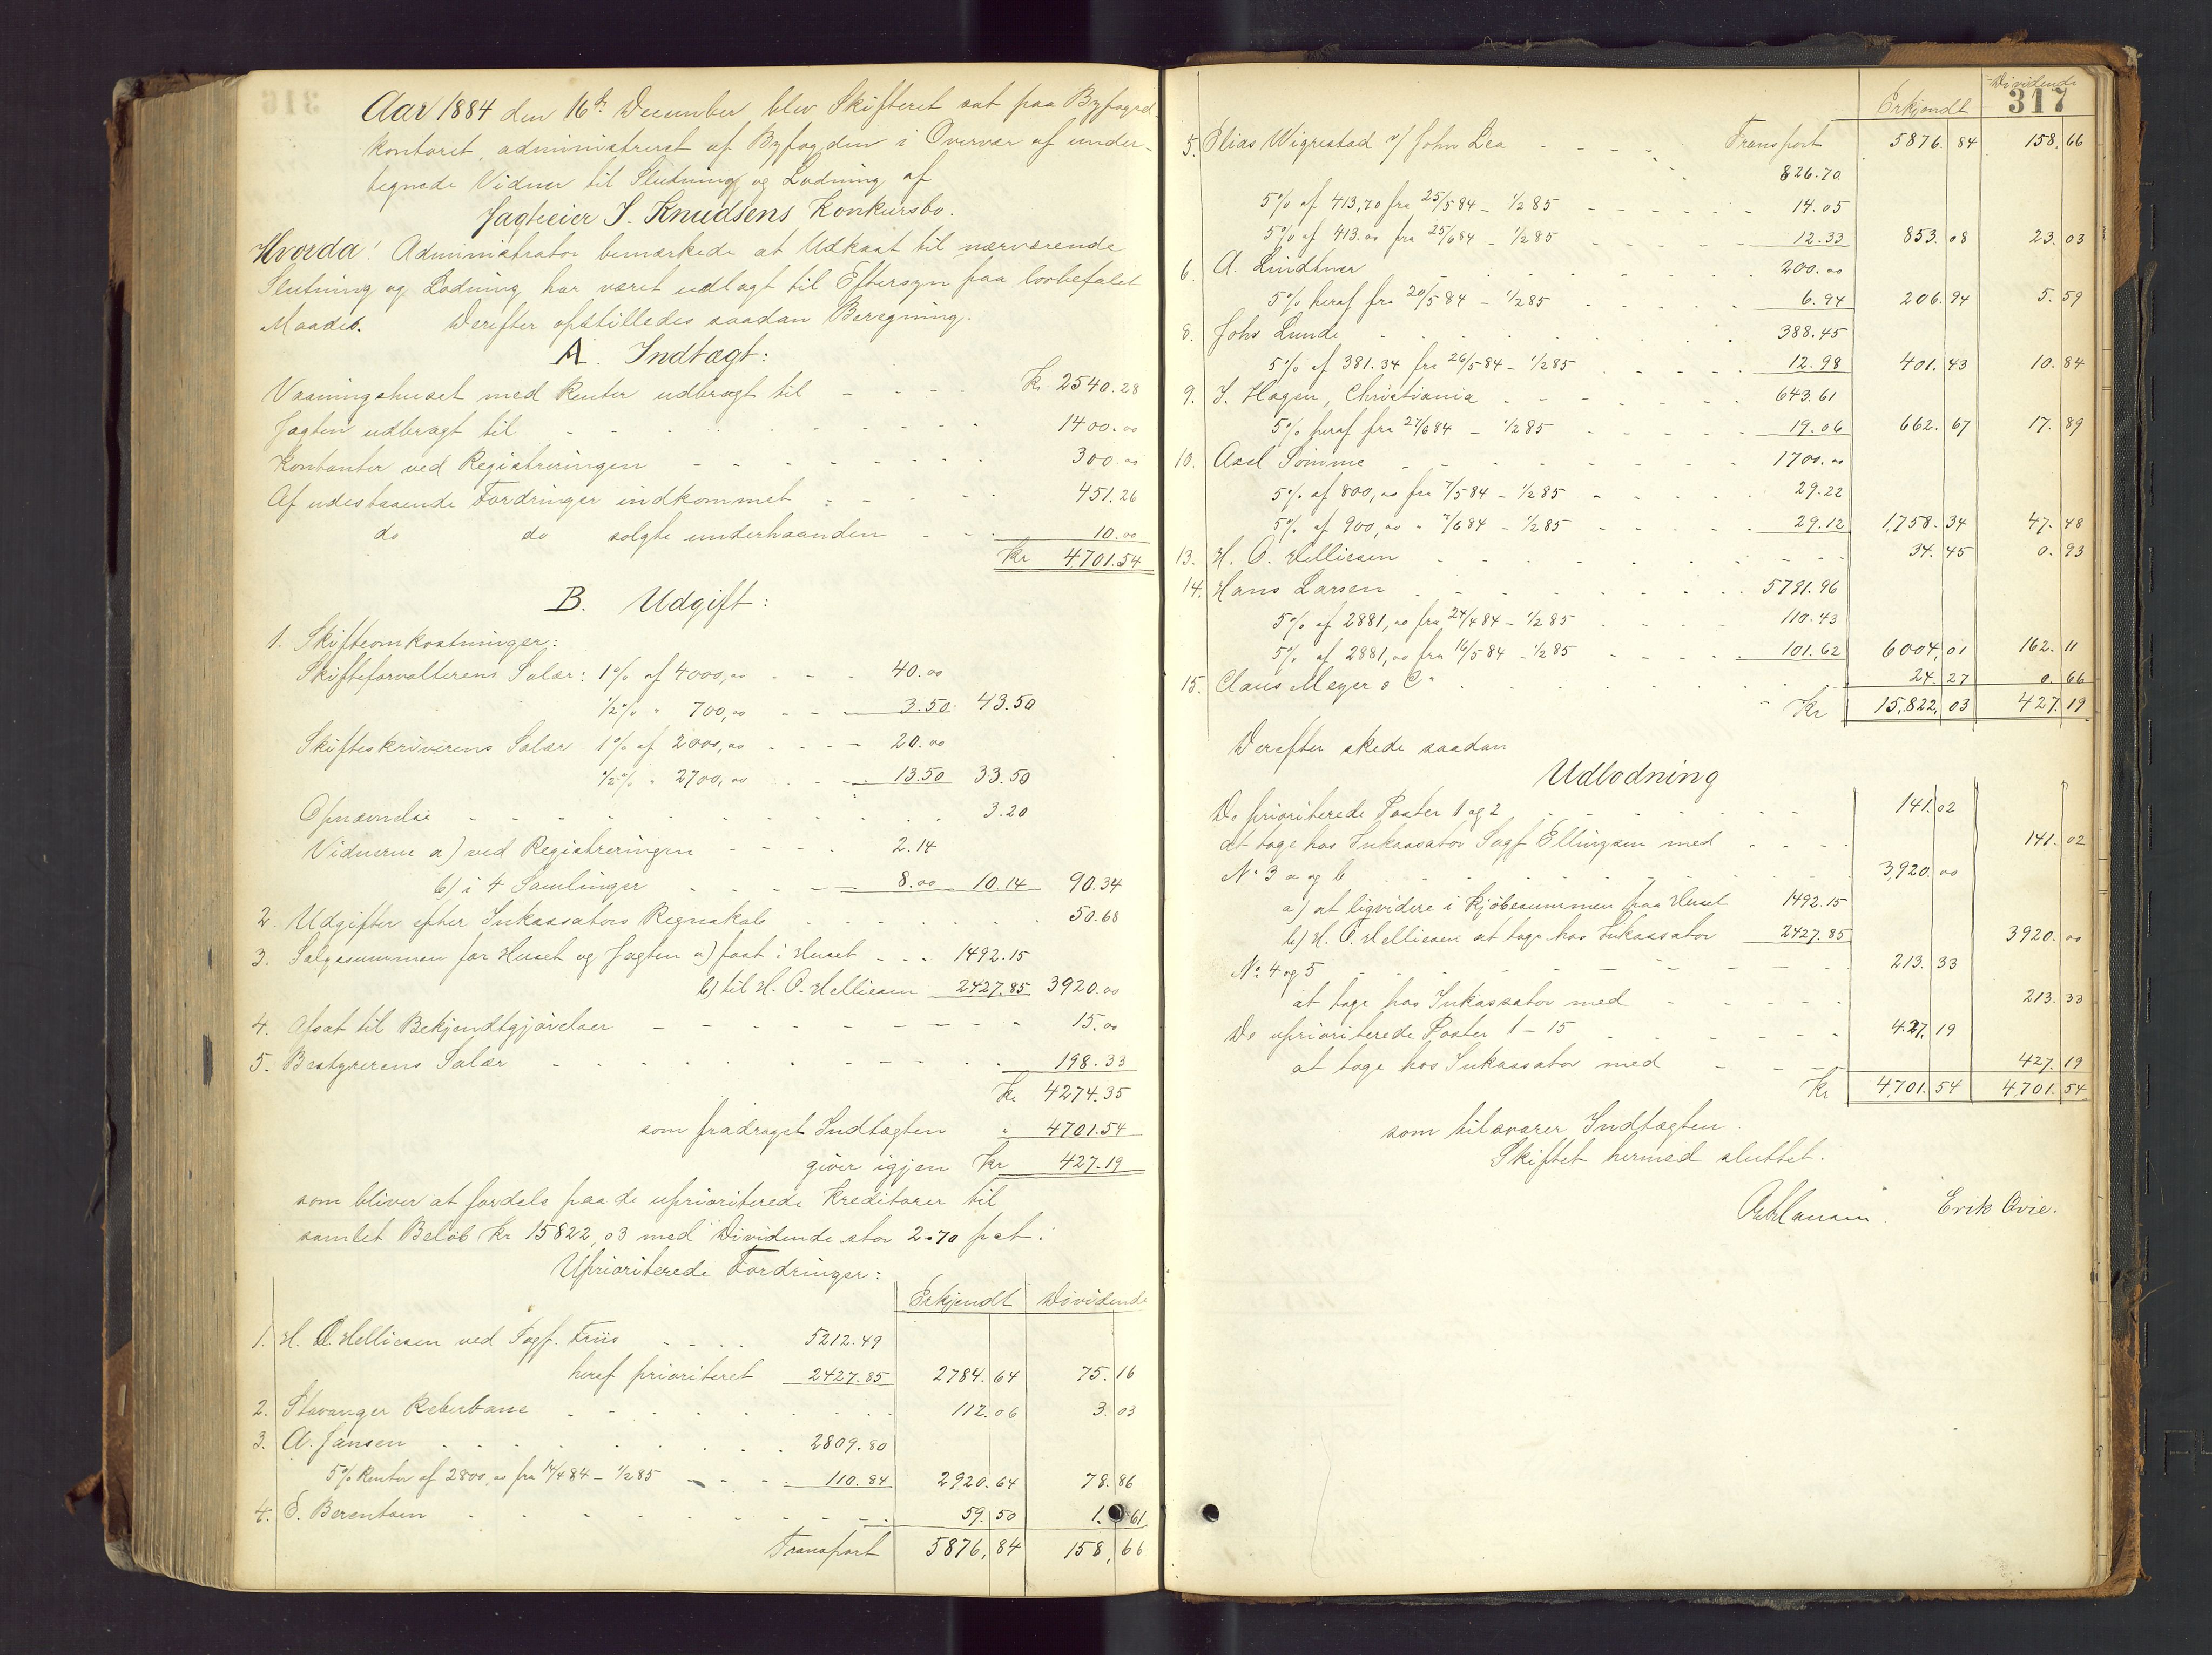 Aar 1884 den 16de December blev Skifteret sat paa Byfoged-
kontoret, administreret af Byfogden i Overvær af under-
tegnede Vidner til Slutning og Lodning af
Jagteier I. Knudsens Konkursbo.
Hvorda! Administrator bemærkede at Udkast til nærværende
Slutning og Lodning har været udlagt til Eftersyn paa lovbefalet
Maade. Derefter opstilledes saadan Beregning.
A. Indtægt:
Vaaningshuset med Renter udbragt til - - - Kr. 2540.28
Jagten udbragt til - - - 1400.00
Kontanter ved Registreringen - - - 300.00
Af udestaaende Fordringer indkommet - - - 451.26
do do solgte underhaanden - - 10.00
Kr 4701.54
B. Udgift:
1. Skifteomkostninger:
Skifteforvalterens Salær: 1% af 4000,00 - - - 40.00
1/2% " 700,00 - - - 3.50 43.50
Skifteskriverens Salær 1% af 2000,00 - - - 20.00
1/2% " 2700,00 - - - 13.50 33.50
Opnævnelse - - - 3.20
Vidnerne a) ved Registreringen - - - 2.14
b) i 4 Samlinger - - - 8.00 10.14 90.34
2. Udgifter efter Inkassators Regnskab - - - 50.68
3. Salgssummen for Huset og Jagten a) fast i Huset - - - 1492.15
b) til H. O. Helliesen 2427.85 3920.00
4. Afsat til Bekjendtgjørelser - - - 15.00
5. Bestyrerens Salær - - - 198.33
Kr 4274.35
som fradraget Indtægten " 4701.54
giver igjen Kr 427.19
som bliver at fordele paa de uprioriterede Kreditorer til
samlet Beløb Kr 15822,03 med Dividende stor 2.70 pct.
Uprioriterede Fordringer:
Erkjendt Dividende
1. H. O. Helliesen ved Sagf. Friis - - - 5212.49
heraf prioriteret 2427.85 2784.64 75.16
2. Stavanger Reberbane - - - 112.06 3.03
3. A. Jansen - - - 2809.80
5% Renter af 2800,00 fra 14/4 84 - 1/2 85 - - - 110.84 2920.64 78.86
4. E. Berentsen - - - 59.50 1.61
Transport 5876,84 158,66
317
Erkjendt Dividende
Transport 5876.84 158.66
5. Elias Wigrestad v/ John Lea - - - 826.70
5% af 413,70 fra 25/5 84 - 1/2 85 - - - 14.05
5% af 413.00 fra 25/6 84 - 1/2 85 - - - 12.33 853.08 23.03
6. A. Lindtner - - - 200.00
5% heraf fra 20/5 84 - 1/2 85 - - - 6.94 206.94 5.59
8. Johs Lunde - - - 388.45
5% af 381.34 fra 26/5 84 - 1/2 85 - - - 12.98 401.43 10.84
9. I. Hagen, Christiania - - - 643.61
5% heraf fra 27/6 84 - 1/2 85 - - - 19.06 662.67 17.89
10. Axel Sømme - - - 1700.00
5% af 800,00 fra 7/5 84 - 1/2 85 - - - 29.22
5% af 900,00 " 7/6 84 - 1/2 85 - - - 29.12 1,758.34 47.48
13. H. O. Helliesen - - - 34.45 0.93
14. Hans Larsen - - - 5791.96
5% af 2881,00 fra 24/4 84 - 1/2 85 - - - 110.43
5% af 2881,00 fra 16/5 84 - 1/2 85 - - - 101.62 6004,01 162.11
15. Claus Meyer & Co - - - 24.27 0.66
Kr 15,822,03 427.19
Derefter skede saadan
Udlodning
De prioriterede Poster 1 og 2 - - - 141.02
at tage hos Inkassator Sagf Ellingsen med - - - 141.02
No 3 a og b - - - 3,920.00
a) at ligvidere i Kjøbesummen paa Huset 1492.15
b) H. O. Helliesen at tage hos Inkassator 2427.85 3920.00
No 4 og 5 - - - 213.33
at tage hos Inkassator med - - - 213.33
De uprioriterede Poster 1 - 15 - - - 427.19
at tage hos Inkassator med - - - 427.19
Kr 4,701.54 4,701.54
som tilsvarer Indtægten.
Skiftet hermed sluttet.
Erik Qvie.